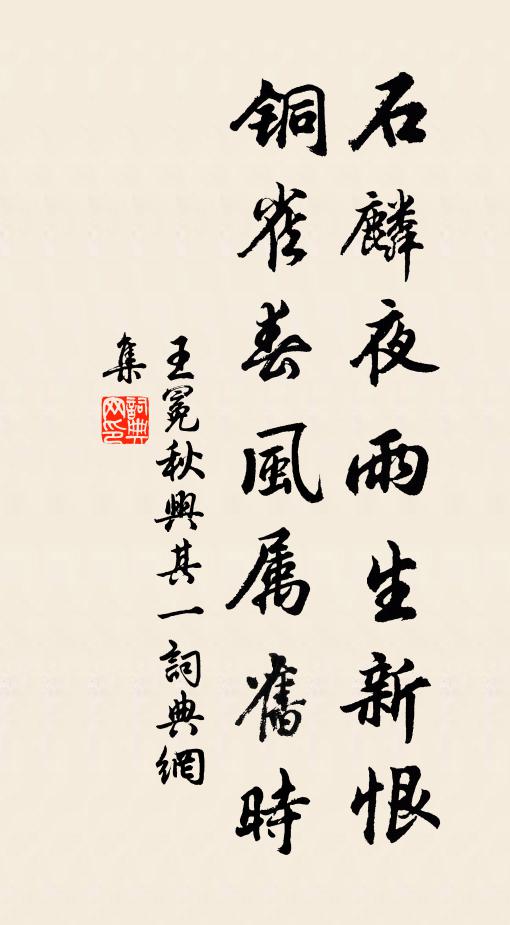 石麟夜雨生新恨
銅雀春風属舊時
王冕秋興其一詞典網
集
詞典
网印